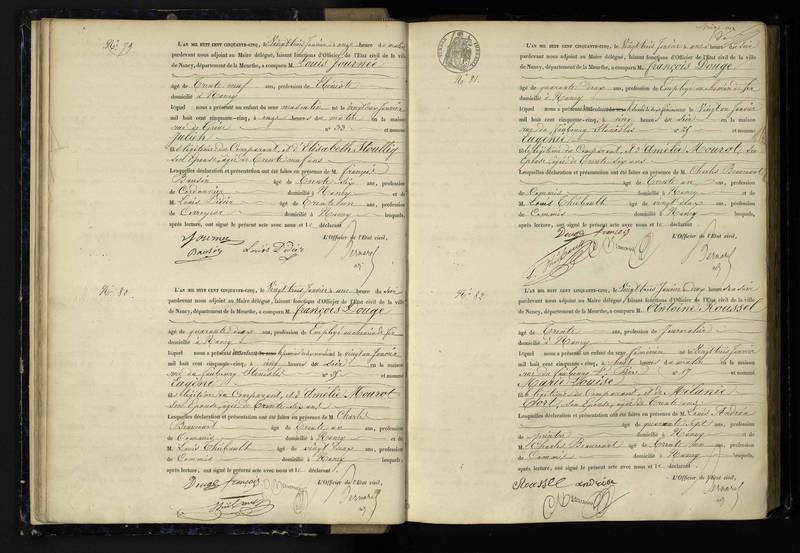 No. 79
L'AN MIL HUIT CENT CINQUANTE-CINQ, le Vingt trois Janvier à onze heures du matin
pardevant nous adjoint au Maire délégué, faisant fonctions d'Officier de l'Etat civil de la ville
de Nancy, département de la Meurthe, a comparu M. Louis Journée
âgé de trente neuf ans, profession de
domicilié à Nancy
lequel nous a présenté un enfant du sexe masculin né le vingt deux Janvier
mil huit cent cinquante-cinq, à onze heures du matin en la maison
rue de n° 33 et nommé
Julien
fils légitime du Comparant, et d'Elisabeth
son Epouse, âgée de trente neuf ans
Lesquelles déclaration et présentation ont été faites en présence de M. françois
âgé de trente six ans, profession
de Cordonnier domicilié à Nancy et de
M. Louis Didier âgé de trente un ans, profession
de Corroyeur domicilié à Nancy lesquels,
après lecture, ont signé le présent acte avec nous et le déclarant
Journée
L'Officier de l'Etat civil,
Louis Didier
Bernard
No. 80
L'AN MIL HUIT CENT CINQUANTE-CINQ, le Vingt trois Janvier à une heure du soir
pardevant nous adjoint au Maire délégué, faisant fonctions d'Officier de l'Etat civil de la ville
de Nancy, département de la Meurthe, a comparu M. françois Douge
âgé de quarante deux ans, profession de Employé au chemin de fer
domicilié à Nancy
lequel nous a présenté le vingt un Janvier
mil huit cent cinquante-cinq, à cinq heures du soir en la maison
rue du faubourg Stanislas n° et nommé
Eugène
fils légitime du Comparant, et d'Amélie Mourot
son Epouse, âgée de trente six ans
Lesquelles déclaration et présentation ont été faites en présence de M. Charles
Beaucourt âgé de trente un ans, profession
de Commis domicilié à Nancy et de
M. Louis Thiébault âgé de vingt deux ans, profession
de Commis domicilié à Nancy lesquels,
après lecture, ont signé le présent acte avec nous et le déclarant
Douge françois
L'Officier de l'Etat civil,
Bernard
No. 81
L'AN MIL HUIT CENT CINQUANTE-CINQ, le Vingt trois Janvier à une heure du soir
pardevant nous adjoint au Maire délégué, faisant fonctions d'Officier de l'Etat civil de la ville
de Nancy, département de la Meurthe, a comparu M. françois Douge
âgé de quarante deux ans, profession de Employé au chemin de fer
domicilié à Nancy
lequel nous a présenté le vingt un Janvier
mil huit cent cinquante-cinq, à cinq heures du soir en la maison
rue du faubourg Stanislas n° et nommé
Eugénie
fille légitime du Comparant, et d'Amélie Mourot, son
Epouse, âgée de trente six ans
Lesquelles déclaration et présentation ont été faites en présence de M. Charles Beaucourt
âgé de trente un ans, profession
de Commis domicilié à Nancy et de
M. Louis Thiébault âgé de vingt deux ans, profession
de Commis domicilié à Nancy lesquels,
après lecture, ont signé le présent acte avec nous et le déclarant
Douge françois
L'Officier de l'Etat civil,
Bernard
No. 82
L'AN MIL HUIT CENT CINQUANTE-CINQ, le Vingt trois Janvier à deux heures du soir
pardevant nous adjoint au Maire délégué, faisant fonctions d'Officier de l'Etat civil de la ville
de Nancy, département de la Meurthe, a comparu M. Antoine Roussel
âgé de trente ans, profession de Journalier
domicilié à Nancy
lequel nous a présenté un enfant du sexe féminin né le Vingt trois Janvier
mil huit cent cinquante-cinq, à huit heures du matin en la maison
rue du faubourg St Pierre n° 17 et nommé
Marie Louise
fille légitime du Comparant, et de Mélanie
son Epouse, âgée de trente ans
Lesquelles déclaration et présentation ont été faites en présence de M. Louis Andréa
âgé de quarante sept ans, profession
de peintre domicilié à Nancy et de
M. Charles Beaucourt âgé de trente un ans, profession
de Commis domicilié à Nancy lesquels,
après lecture, ont signé le présent acte avec nous et le déclarant
Roussel
L'Officier de l'Etat civil,
Bernard